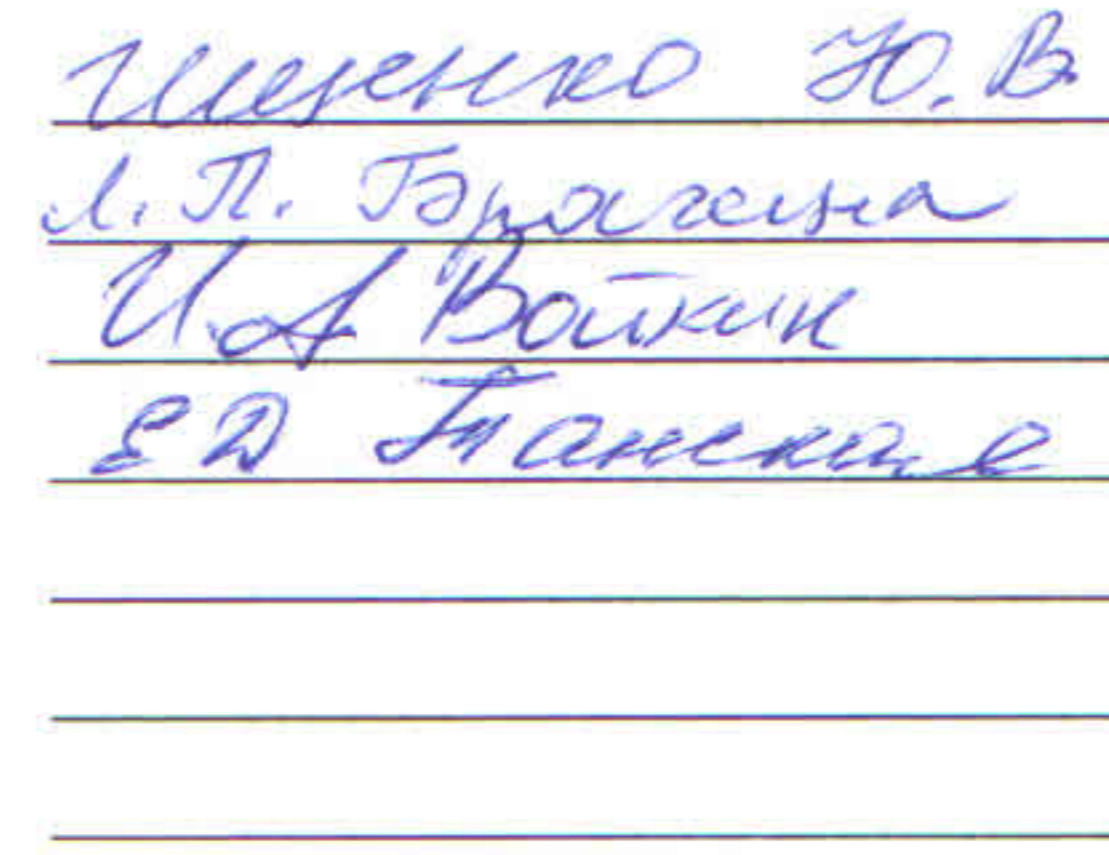 Ищенко Ю. В.
Л. П. Брагина
И. А Войкин
Е Д Танская